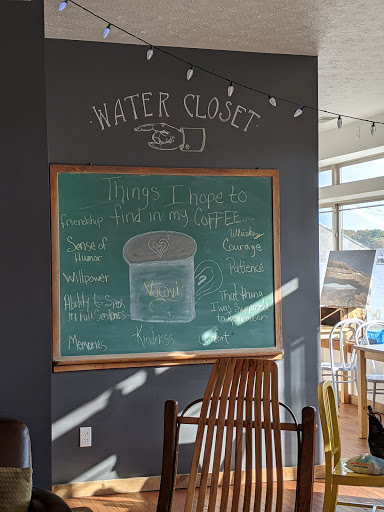 WATER CLOSET
Things I hope to
find in my COFFEE....
Friendship
Sense of
Humor
Willpower
Ability to Speak
in Full Sentences
Memories
Kindness
Comfort
Whiskey
Courage
Patience
That thing
I was supposed
to remember